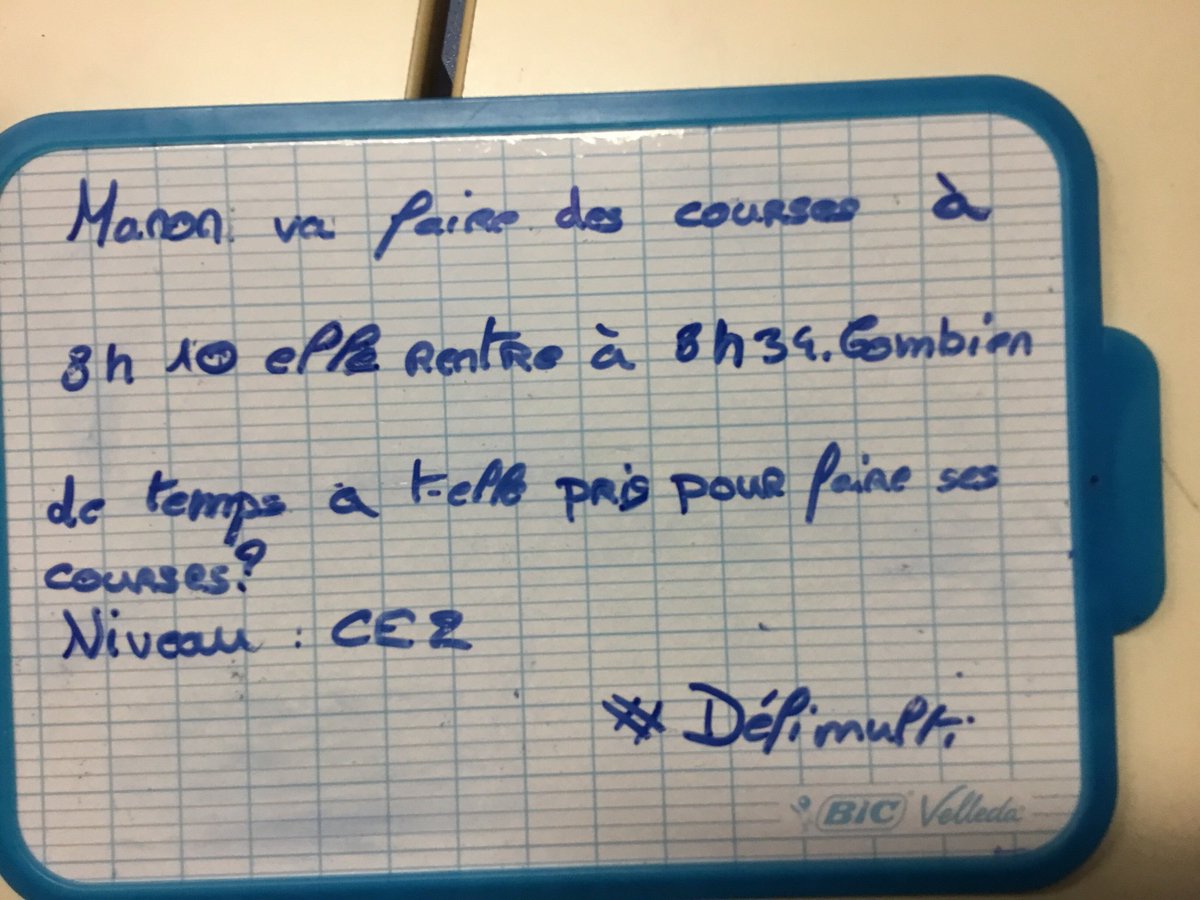 Manon va faire des courses à
8h 10 elle rentre à 8h34. Combien
de temps a t-elle pris pour faire ses
courses?
Niveau : CE2
# Défimulti
BIC Velleda